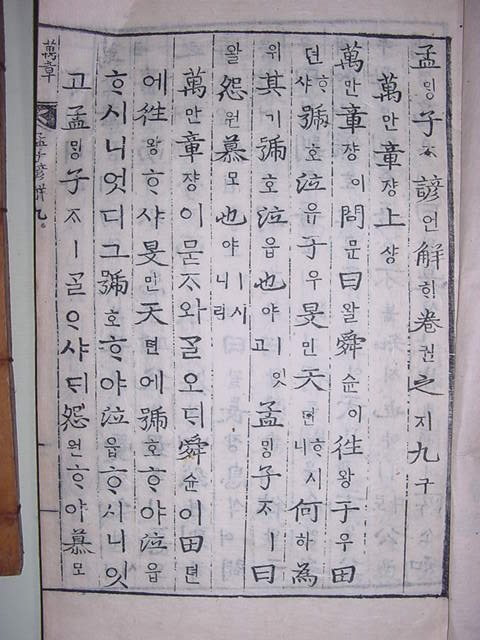 孟밍子ᄌᆞ諺언解ᄒᆡ卷권之지九구
萬만章쟝上상
萬만章쟝이問문曰왈舜슌이徃왕于우田
뎐ᄒᆞ샤號호泣읍于우旻민天텬ᄒᆞ시니何하為
위其기號호泣읍也야ㅣ잇고孟밍子ᄌᆞㅣ曰
왈怨원慕모也야ㅣ시니
萬만章쟝이묻ᄌᆞ와ᄀᆞᆯ오ᄃᆡ舜슌이田뎐
에徃왕ᄒᆞ샤旻민天텬에號호ᄒᆞ야泣읍
ᄒᆞ시니엇디그號호ᄒᆞ야泣읍ᄒᆞ시니잇
고孟밍子ᄌᆞㅣᄀᆞᆯᄋᆞ샤ᄃᆡ怨원ᄒᆞ야慕모
萬章 孟子諺解 九。